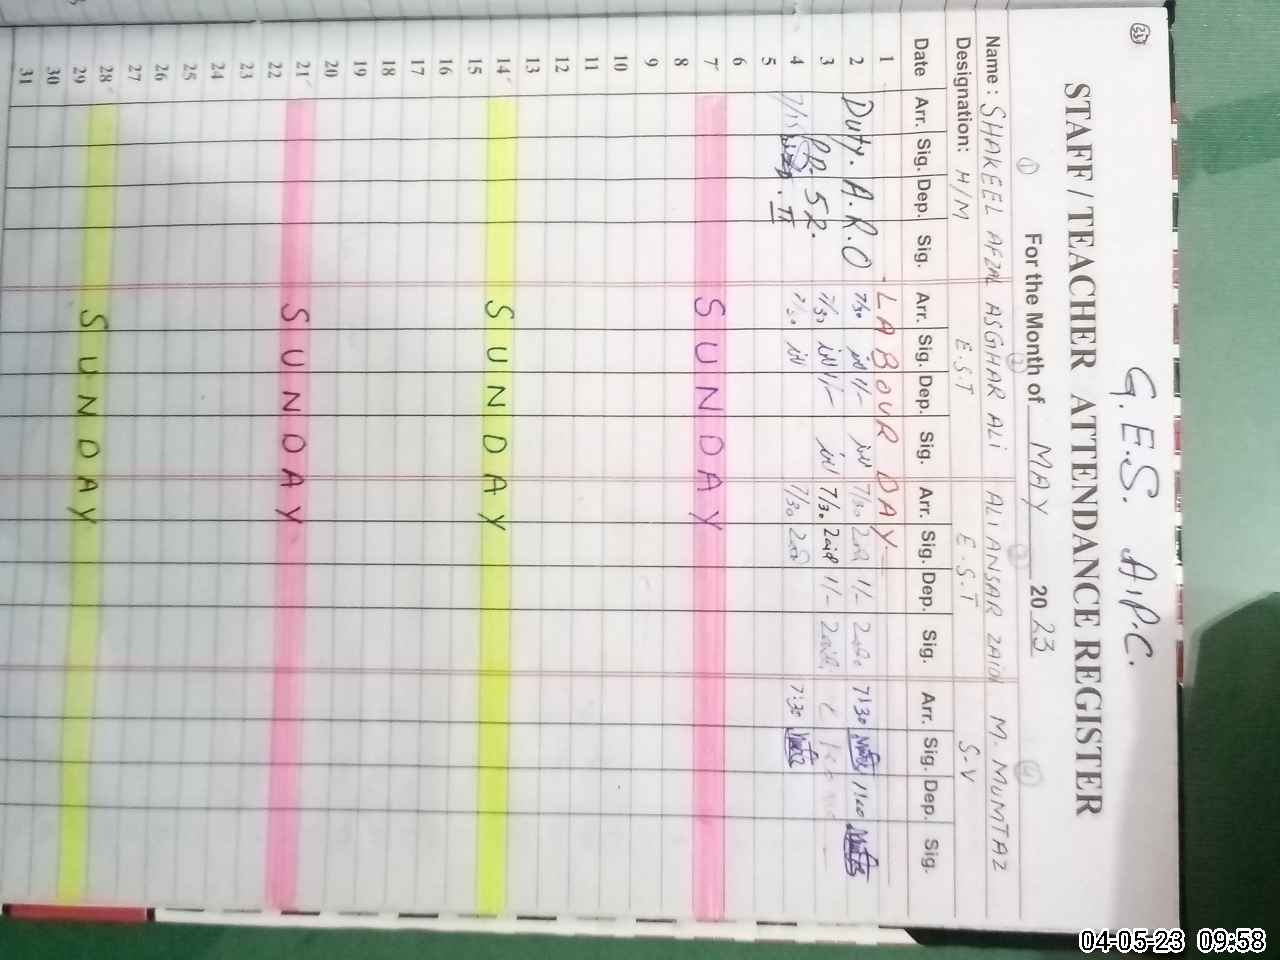 G.E.S. A.P.C.
STAFF / TEACHER ATTENDANCE REGISTER
For the Month of MAY 2023
Name: SHAKEEL AFZAL ASGHAR ALI ALI ANSAR ZAIDI M. MUMTAZ
Designation: H/M E.S.T E.S.T S.V
Date Arr. Sig. Dep. Sig. Arr. Sig. Dep. Sig. Arr. Sig. Dep. Sig. Arr. Sig. Dep. Sig.
1 LABOUR DAY
2 Duty. A.R.O 7/30 1/- 7/30 1/- 7:30 1:00
3 7/30 1/- 7/30 1/-
4 7/30 7/30 7:30
5
6
7 SUNDAY
8
9
10
11
12
13
14 SUNDAY
15
16
17
18
19
20
21 SUNDAY
22
23
24
25
26
27
28 SUNDAY
29
30
31
04-05-23 09:58